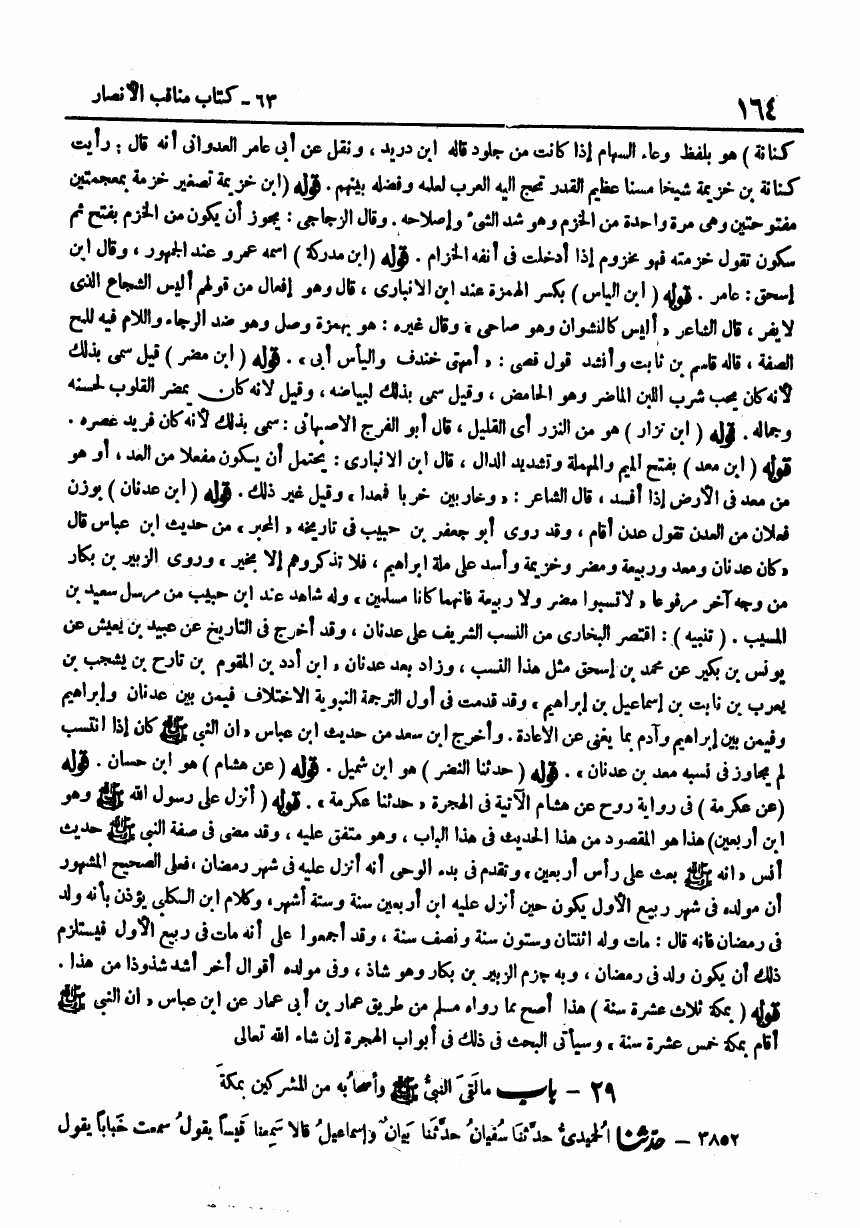 ١٦٤
٦٣ - كتاب مناقب الأنصار
كنانة ) هو بلفظ وعاء السهام إذا كانت من جلود قاله ابن دريد ، ونقل عن أبى عامر العدوانى أنه قال : رأيت
كنانة بن خزيمة شيخا مسنا عظيم القدر تحج اليه العرب لعلمه وفضله بينهم . قوله (ابن خزيمة تصغير خزمة بمعجمتين
مفتوحتين وهى مرة واحدة من الخزم وهو شد الشىء وإصلاحه . وقال الزجاجى : يجوز أن يكون من الخزم بفتح ثم
سكون تقول خزمته فهو مخزوم إذا أدخلت فى أنفه الخزام . قوله (ابن مدركة ) اسمه عمرو عند الجمهور ، وقال ابن
إسحق : عامر . قوله ( ابن الياس ) بكسر الهمزة عند ابن الانبارى ، قال وهو إفعال من قولهم أليس الشجاع الذى
لا يفر ، قال الشاعر « أليس كالنشوان وهو صاحى » وقال غيره : هو بهمزة وصل وهو ضد الرجاء واللام فيه للمح
الصفة ، قاله قاسم بن ثابت وأنشد قول قصى : « أمهتى خندف والياس أبى » . قوله ( ابن مضر ) قيل سمى بذلك
لأنه كان يحب شرب اللبن الماضر وهو الحامض ، وقيل سمى بذلك لبياضه ، وقيل لانه كان يمضر القلوب لحسنه
وجماله . قوله ( ابن نزار ) هو من النزر أى القليل ، قال أبو الفرج الاصبهانى : سمى بذلك لأنه كان فريد عصره .
قوله ( ابن معد ) بفتح الميم والمهملة وتشديد الدال ، قال ابن الانبارى : يحتمل أن يكون مفعلا من العد ، أو هو
من معد فى الأرض إذا أفسد ، قال الشاعر : « وخاربين خربا فمعدا » وقيل غير ذلك . قوله ( ابن عدنان ) بوزن
فعلان من العدن تقول عدن أقام ، وقد روى أبو جعفر بن حبيب فى تاريخه « المحبر » من حديث ابن عباس قال
« كان عدنان ومعد وربيعة ومضر وخزيمة وأسد على ملة ابراهيم ، فلا تذكروهم إلا بخير » وروى الزبير بن بكار
من وجه آخر مرفوعا « لا تسبوا مضر ولا ربيعة فانهما كانا مسلمين » وله شاهد عند ابن حبيب من مرسل سعيد بن
المسيب . ( تنبيه ) : اقتصر البخارى من النسب الشريف على عدنان ، وقد أخرج فى التاريخ عن عبيد بن يعيش عن
يونس بن بكير عن محمد بن إسحق مثل هذا النسب ، وزاد بعد عدنان « ابن أدد بن المقوم بن تارح بن يشجب بن
يعرب بن نابت بن إسماعيل بن إبراهيم » وقد قدمت فى أول الترجمة النبوية الاختلاف فيمن بين عدنان وإبراهيم
وفيمن بين إبراهيم وآدم بما يغنى عن الاعادة . وأخرج ابن سعد من حديث ابن عباس « ان النبى ﷺ كان إذا انتسب
لم يجاوز فى نسبه معد بن عدنان » . قوله ( حدثنا النضر ) هو ابن شميل . قوله ( عن هشام ) هو ابن حسان . قوله
(عن عكرمة ) فى رواية روح عن هشام الآتية فى الهجرة « حدثنا عكرمة » . قوله ( أنزل على رسول الله ﷺ وهو
ابن أربعين) هذا هو المقصود من هذا الحديث فى هذا الباب ، وهو متفق عليه ، وقد مضى فى صفة النبى ﷺ حديث
أنس « انه ﷺ بعث على رأس أربعين » وتقدم فى بدء الوحى أنه أنزل عليه فى شهر رمضان ، فعلى الصحيح المشهور
أن مولده فى شهر ربيع الأول يكون حين أنزل عليه ابن أربعين سنة وستة أشهر ، وكلام ابن الكلبى يؤذن بأنه ولد
فى رمضان فانه قال : مات وله اثنتان وستون سنة ونصف سنة ، وقد أجمعوا على أنه مات فى ربيع الأول فيستلزم
ذلك أن يكون ولد فى رمضان ، وبه جزم الزبير بن بكار وهو شاذ ، وفى مولده أقوال أخر أشد شذوذا من هذا .
قوله ( بمكة ثلاث عشرة سنة ) هذا أصح مما رواه مسلم من طريق عمار بن أبى عمار عن ابن عباس « ان النبى ﷺ
أقام بمكة خمس عشرة سنة » وسيأتى البحث فى ذلك فى أبواب الهجرة إن شاء الله تعالى
٢٩ - باب ما لقىَ النبىُّ ﷺ وأصحابُه من المشركين بمكةَ
٣٨٥٢ - حدثنا الحميدىُّ حدَّثنَا سُفيانُ حدَّثنَا بَيانٌ وإسماعيلُ قالا سَمِعنا قيساً يقولُ سمعت خَباباً يقول